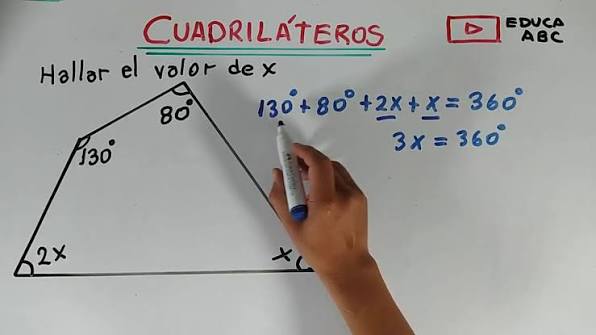 CUADRILÁTEROS
EDUCA
ABC
Hallar el valor de x
130° + 80° + 2x + x = 360°
3x = 360°
80°
130°
2x
x